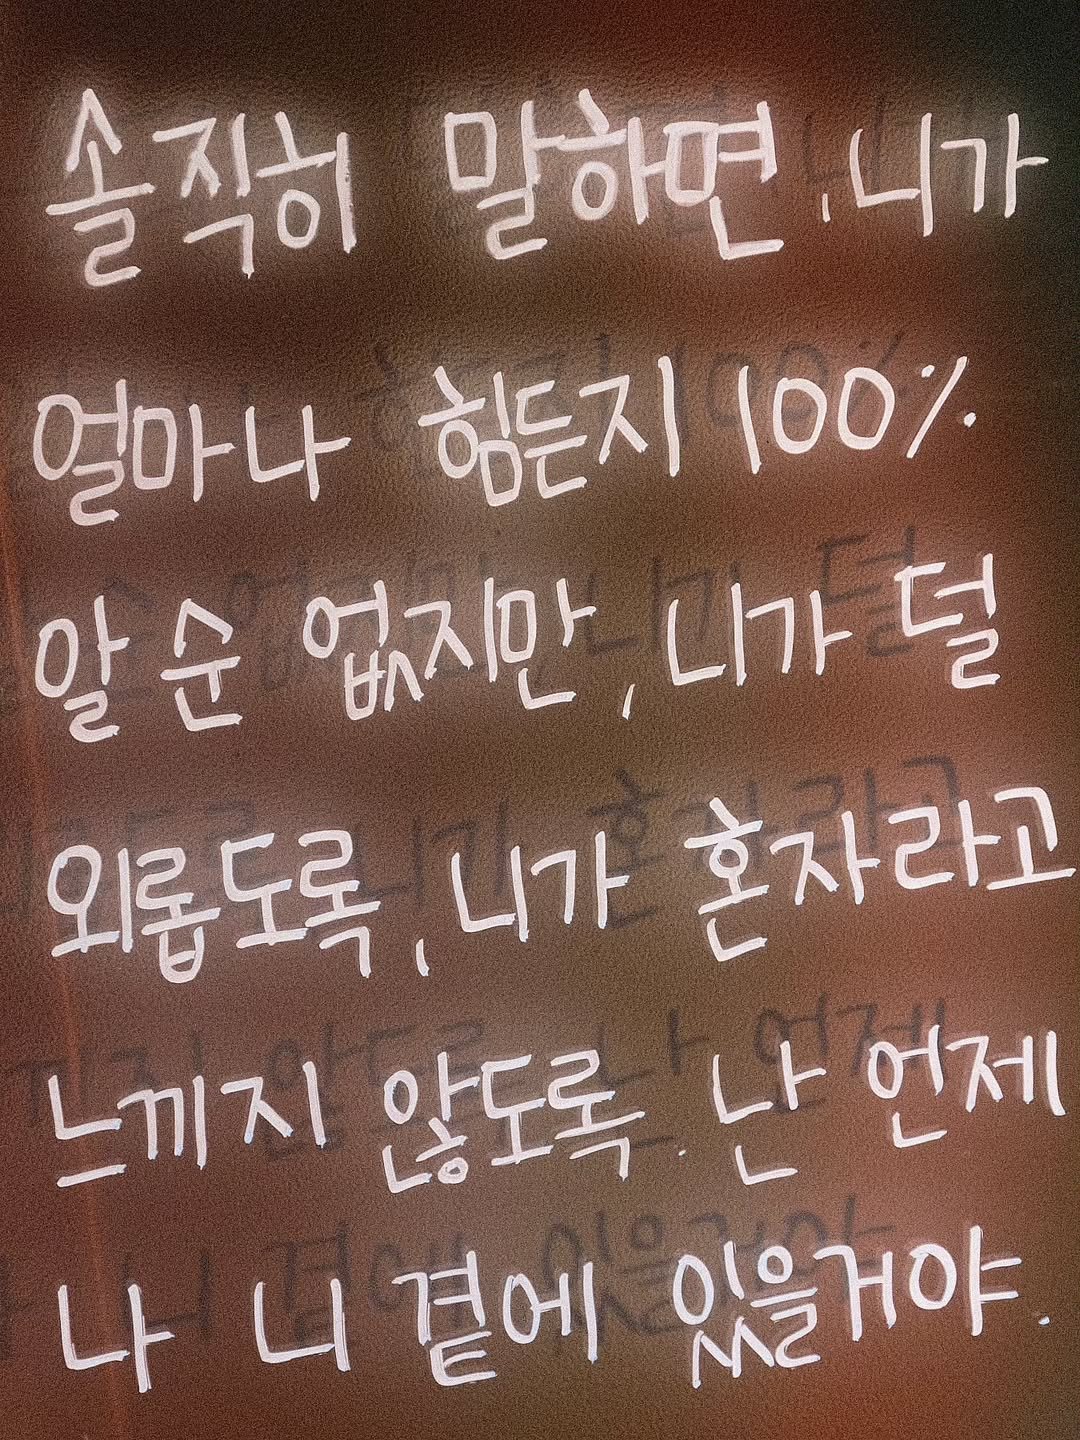 솔직히 말하면, 니가
얼마나 힘든지 100%
알 순 없지만, 니가 덜
외롭도록, 니가 혼자라고
느끼지 않도록. 난 언제
나 니 곁에 있을거야.